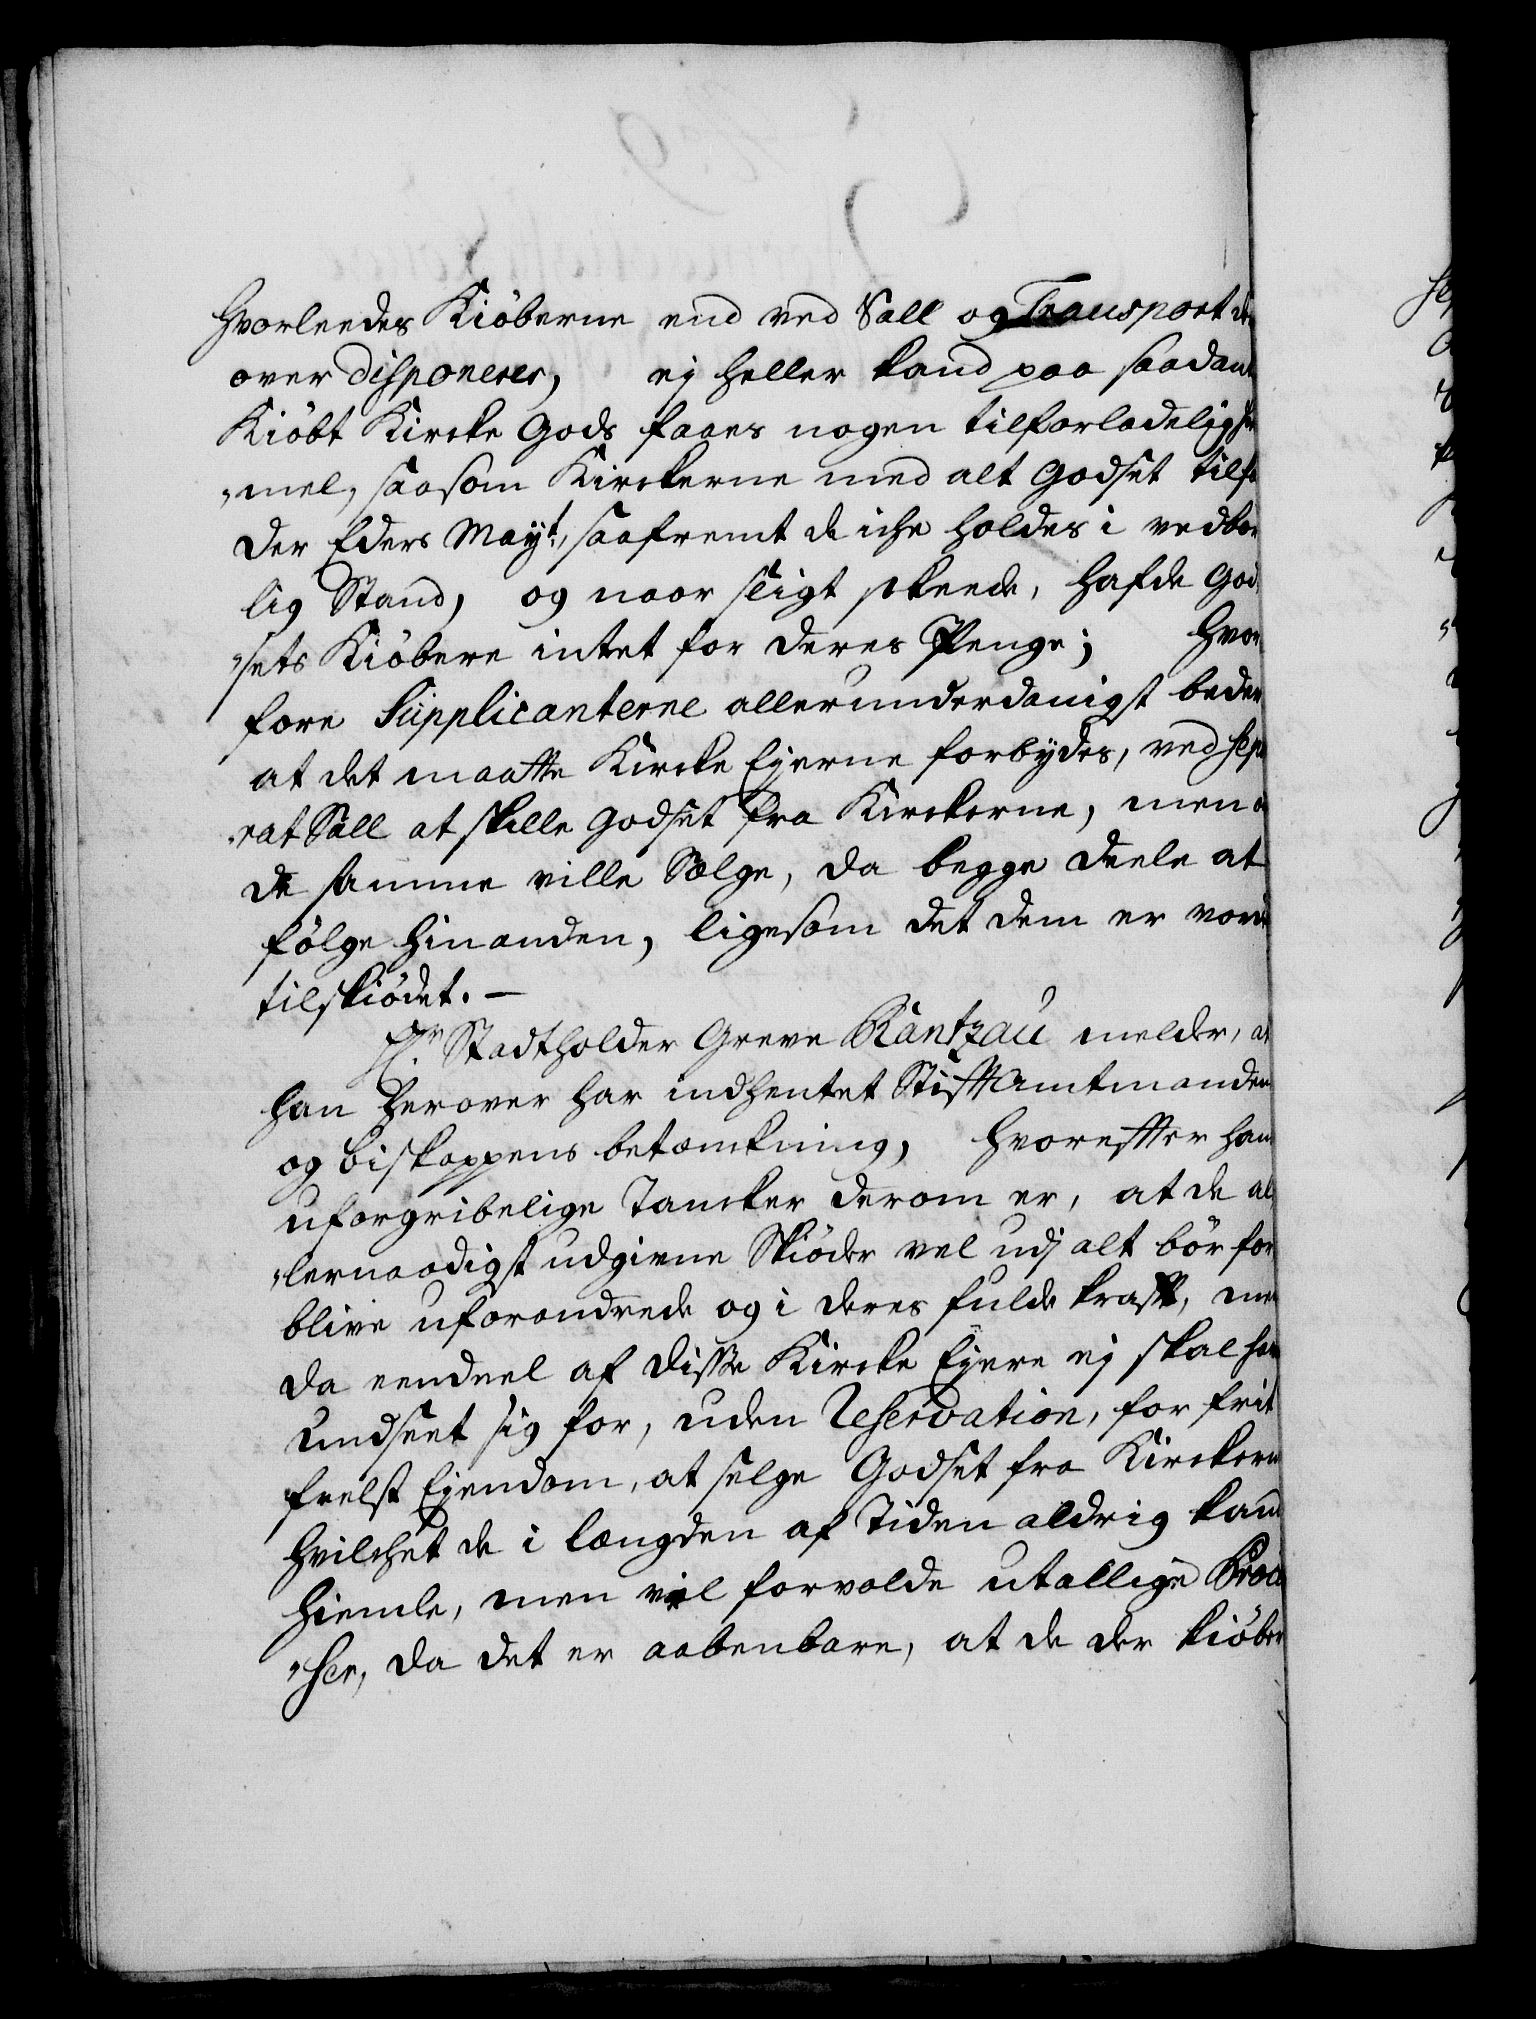 hvorleedes Kiöberne end ved Sall og Transport der
over disponerer, ej heller kand paa saadant
Kiöbt Kircke Gods faaes nogen tilforladelig Hie
„mel, saasom Kirckerne med alt Godset tilfal
der Eders Mayt, saafremt de iche holdes i vedbör
lig Stand, og naar sligt skeede, hafde God
„sets Kiöbere intet for deres Penge; Hvor
fore Supplicanterne allerunderdanigst beder
at det maatte Kircke Ejerne forbydes, ved sepa
„rat Sall at skille Godset fra Kirckerne, men om
de samme ville Sælge, da begge deele at
fölge hinanden, ligesom det dem er vordet
tilskiödet. —
Hr Stadtholder Greve Rantzau melder, at
han herover har indhentet Stifftamtmanden
og biskoppens betænkning, hvoreffter hans
uforgribelige Tancker derom er, at de al
„lernaadigst udgivne Skiöder vel udj alt bör for
blive uforandrede og i deres fulde krafft, men
da eendeel af disse Kircke Ejere ej skal have
undseet sig for, uden Reservation, for frit
frelst Ejendom, at selge Godset fra Kirckerne
hvilchet de i længden af Tiden aldrig kand
hiemle, men vil forvolde utallige Proces
„ser, da det er aabenbare, at de der kiöber